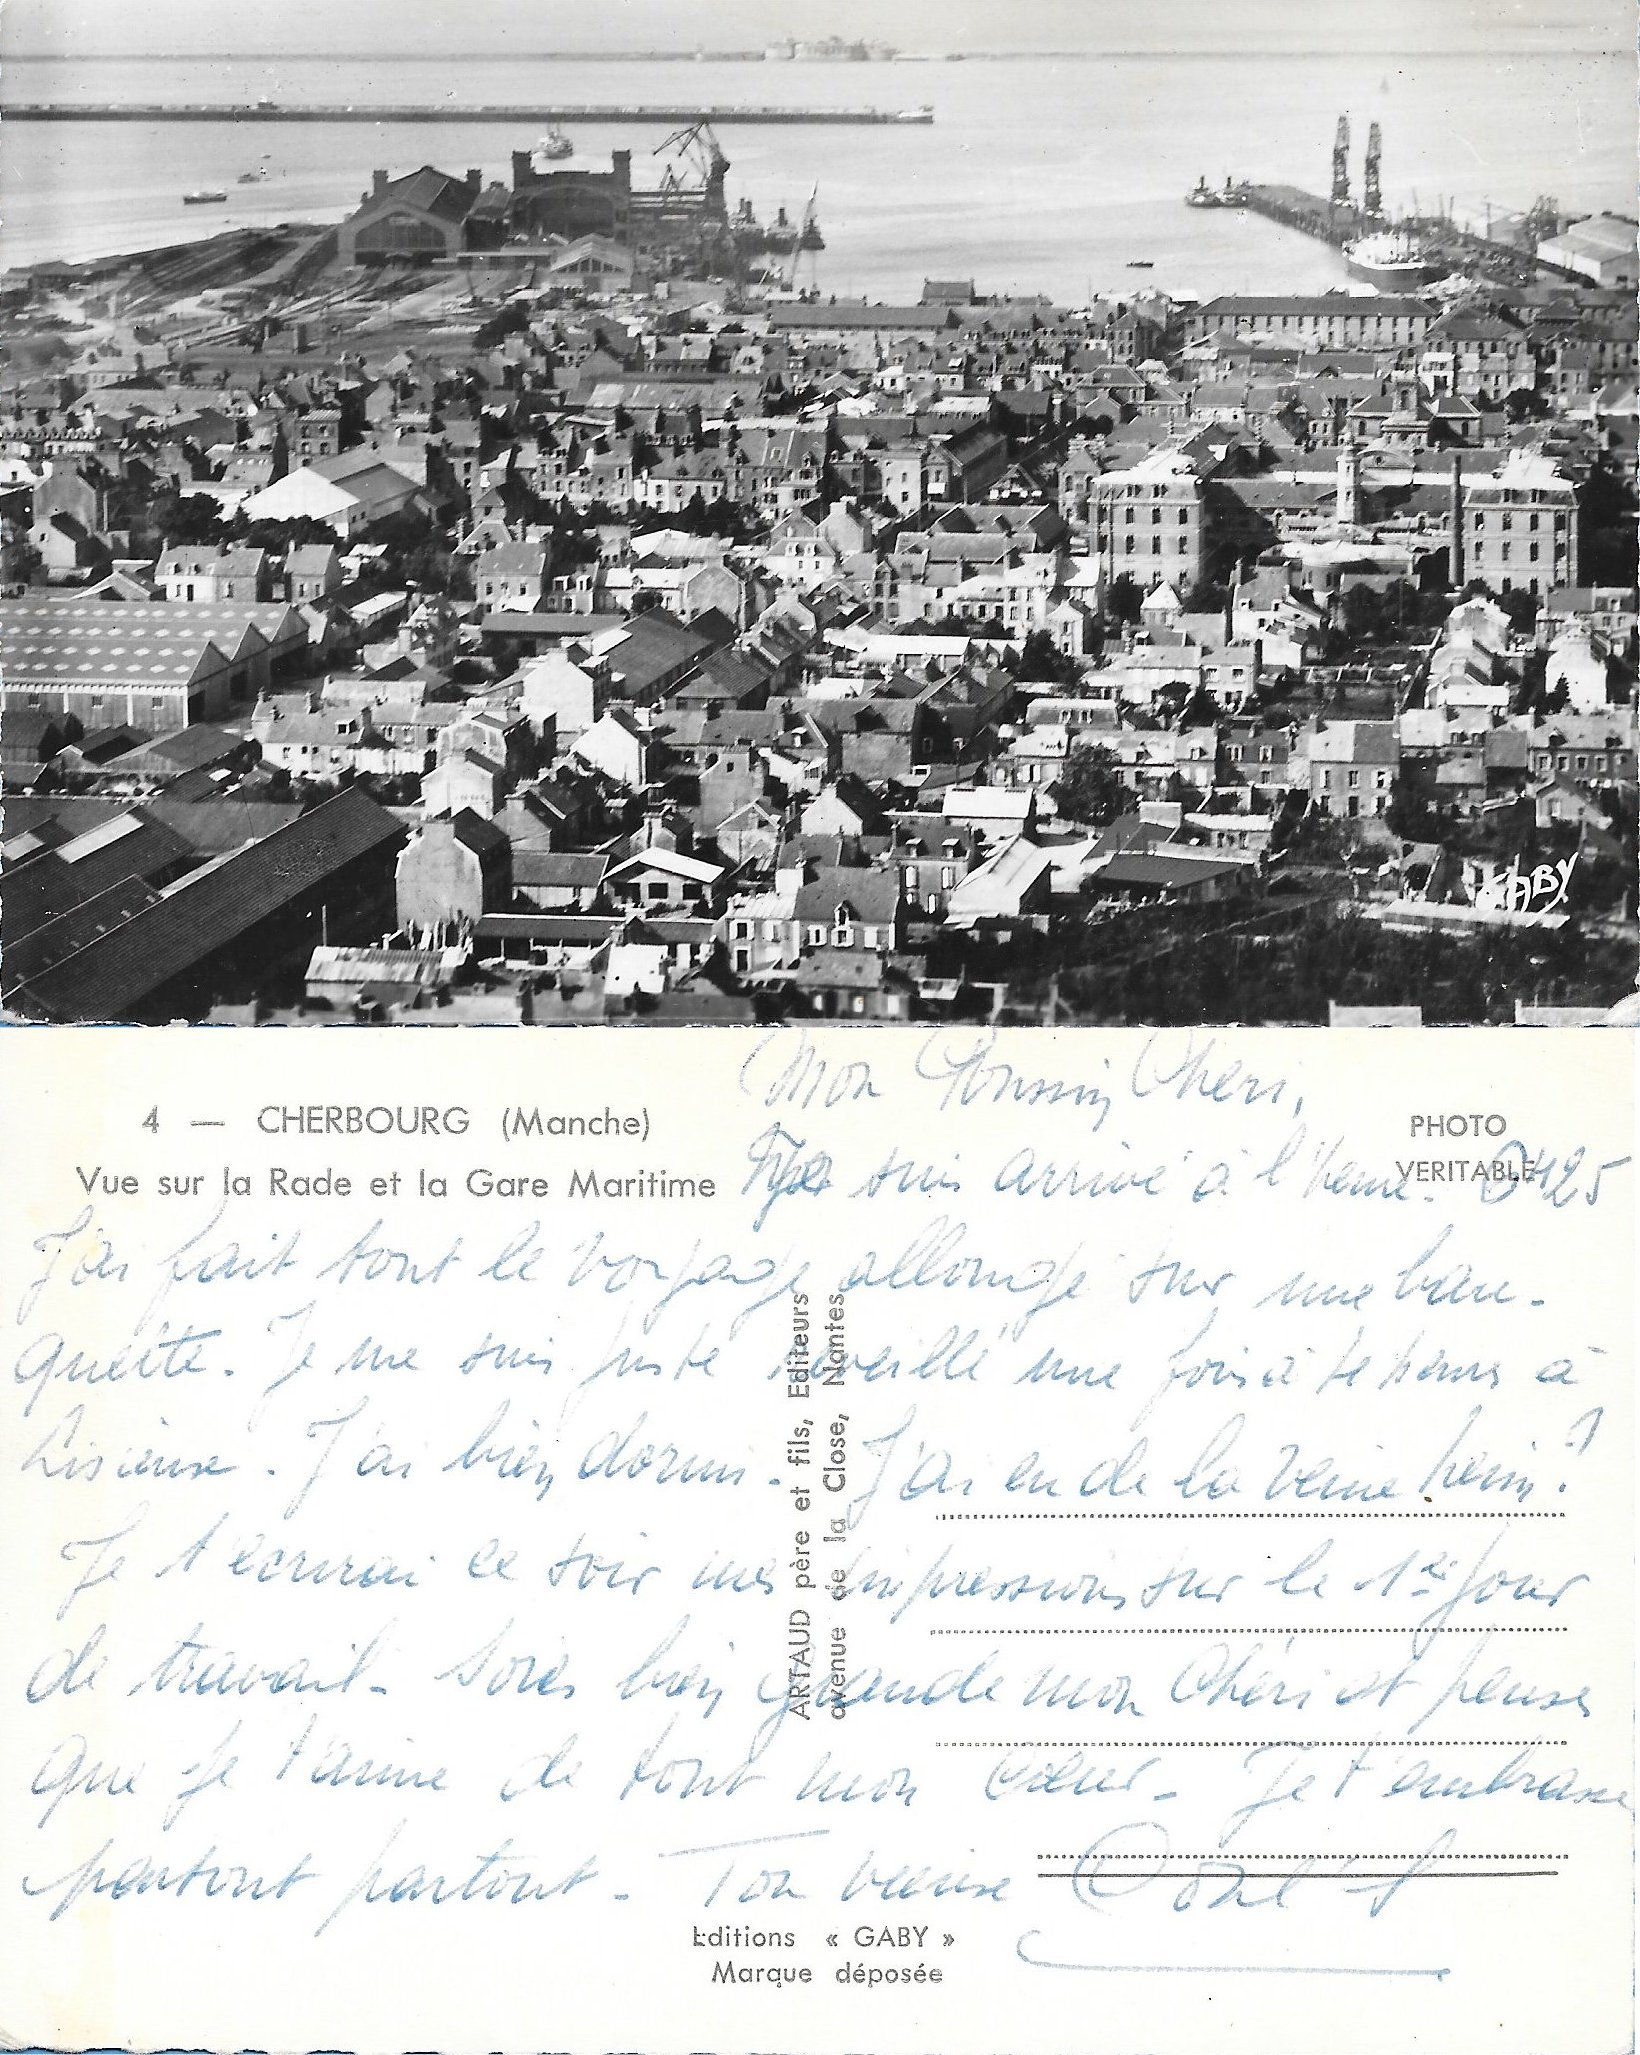 GABY
Mon Poussin Chéri,
4 — CHERBOURG (Manche)
PHOTO
VERITABLE
Vue sur la Rade et la Gare Maritime
suis arrivé à l'heure. 6h25
J'ai fait tout le voyage allongé sur une ban-
quette. Je me suis juste réveillé une fois à
Lisieux. J'ai bien dormi. J'ai eu de la veine hein?
Je t'écrirai ce soir mes impressions sur le 1er jour
de travail. Sois bien grande mon Chéri et penses
que je t'aime de tout mon Cœur. Je t'embrasse
partout partout. Ton
ARTAUD père et fils, Editeurs
avenue de la Close, Nantes
Editions « GABY »
Marque déposée